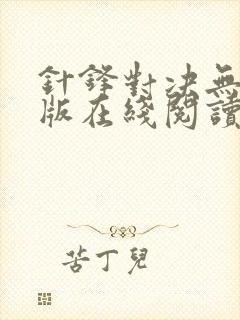 針鋒對決無
版在綫閱讀
苦丁兒